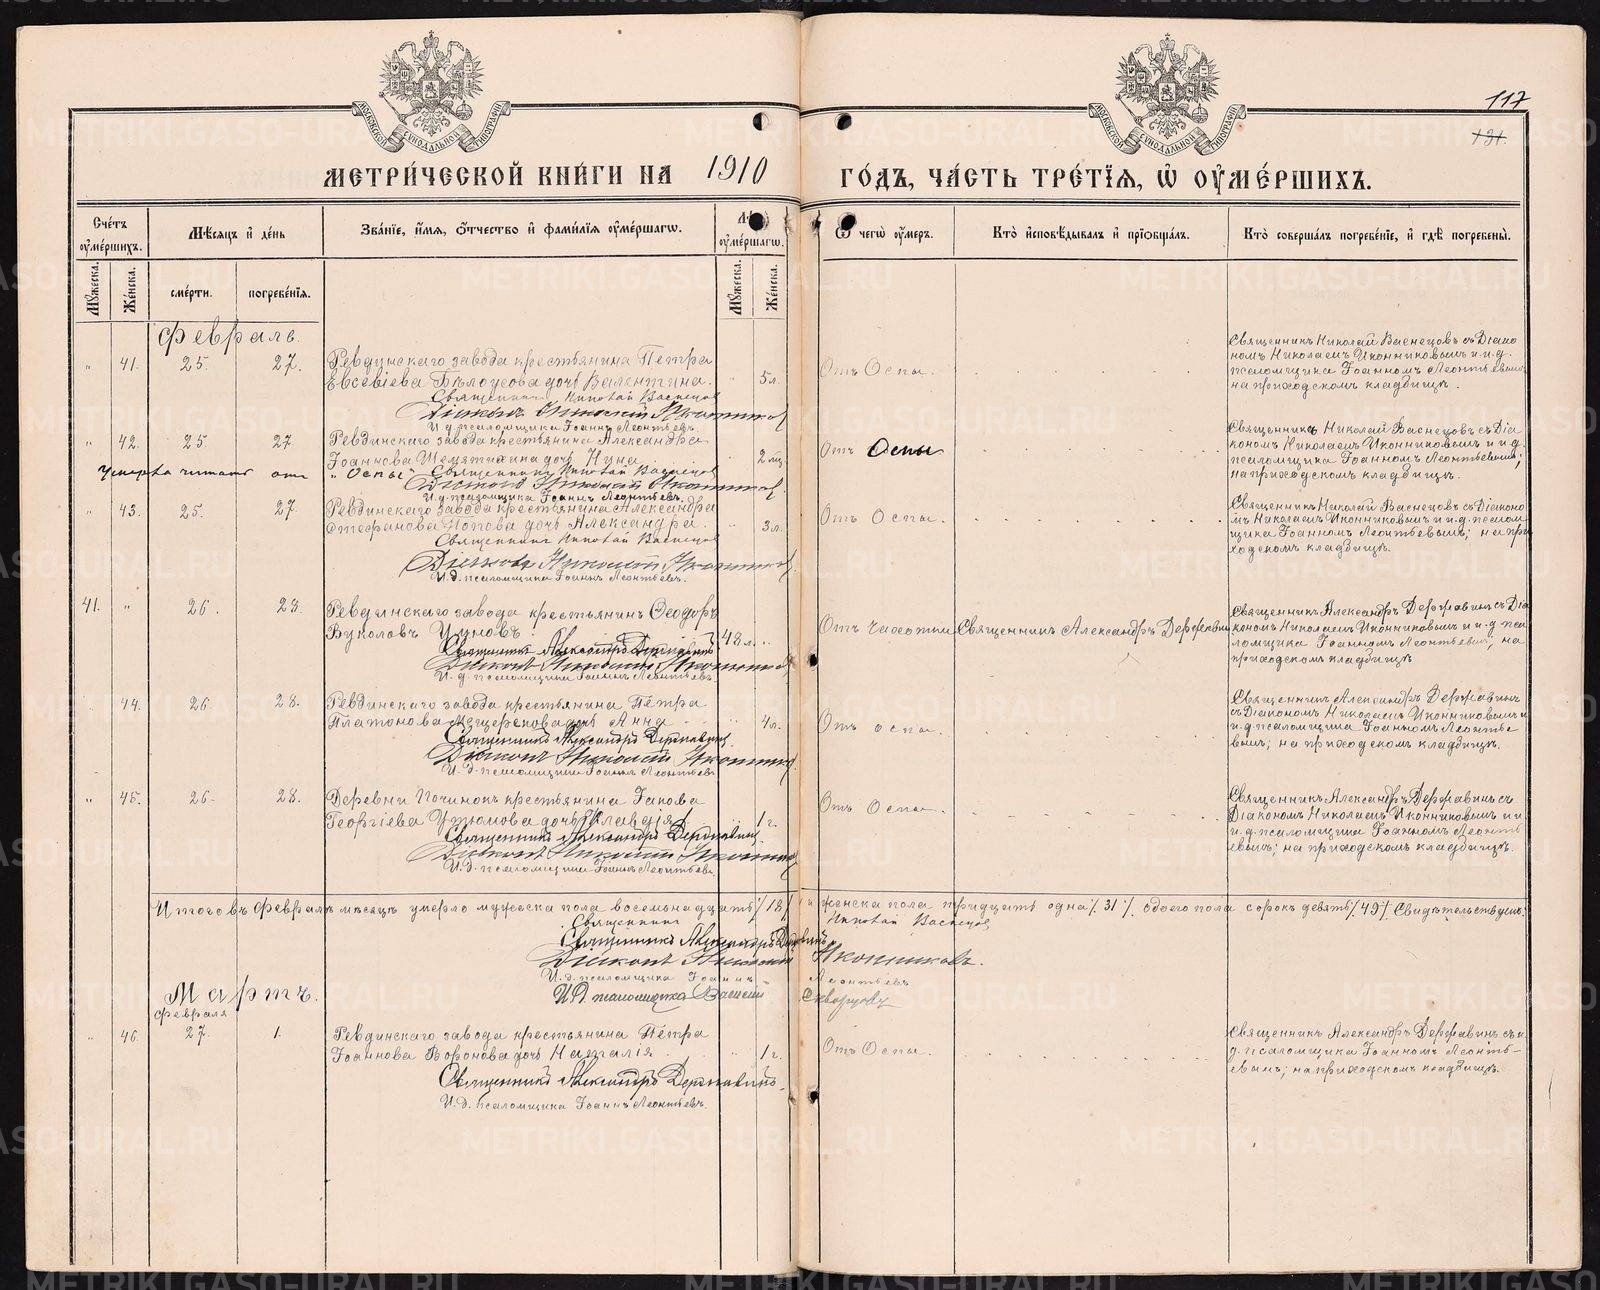 117
131.
МОСКОВСКОЙ СѴНОДАЛЬНОЙ ТИПОГРАФІИ
МОСКОВСКОЙ СѴНОДАЛЬНОЙ ТИПОГРАФІИ
МЕТРИ́ЧЕСКОЙ КНИ́ГИ НА 1910 ГО́ДЪ, ЧА́СТЬ ТРЕ́ТІѦ, Ѡ҆ ОУ҆МЕ́РШИХЪ.
Сче́тъ оу҆ме́ршихъ.
Мѹ́жеска.
Же́нска.
Мѣ́сяцъ и҆ де́нь
сме́рти.
погребе́нїѧ.
Зва́нїе, и҆́мѧ, ѻ҆́тчество и҆ фами́лїѧ оу҆ме́ршагѡ.
оу҆ме́ршагѡ.
Мѹ́жеска.
Же́нска.
Ѿ чегѡ̀ оу҆́меръ.
Кто̀ и҆сповѣ́дывалъ и҆ прїѡбща́лъ.
Кто̀ соверша́лъ погребе́нїе, и҆ гдѣ̀ погребены̀.
Февраль.
" 41. 25. 27. Ревдинскаго завода крестьянина Петра
Евсевіева Бѣлоусова дочь Валентина. " 5 л.
Священникъ Николай Васнецовъ
Діаконъ Николай Иконниковъ
И. д. псаломщика Іоаннъ Леонтьевъ.
Отъ Оспы.
Священникъ Николай Васнецовъ съ Діако
номъ Николаемъ Иконниковымъ и и.д.
псаломщика Іоанномъ Леонтьевымъ
на приходскомъ кладбищѣ.
" 42. 25 27 Ревдинскаго завода крестьянина Александра
Іоаннова дочь
Священникъ Николай Васнецовъ
Діаконъ Николай Иконниковъ
И. д. псаломщика Іоаннъ Леонтьевъ.
читать отъ "Оспы"
Отъ Оспы
Священникъ Николай Васнецовъ съ Діа
кономъ Николаемъ Иконниковымъ и и.д.
псаломщика Іоанномъ Леонтьевымъ;
на приходскомъ кладбищѣ.
" 43. 25. 27. Ревдинскаго завода крестьянина Александра
Стефанова Попова дочь Александра. " 3 л.
Священникъ Николай Васнецовъ
Діаконъ Николай Иконниковъ
И. д. псаломщика Іоаннъ Леонтьевъ.
Отъ Оспы.
Священникъ Николай Васнецовъ съ Діаконо
мъ Николаемъ Иконниковымъ и и.д. псалом
щика Іоанномъ Леонтьевымъ; на при
ходскомъ кладбищѣ.
41. " 26. 28. Ревдинскаго завода крестьянинъ Ѳеодоръ
Вуколовъ 48 л.
Священникъ Александръ Державинъ
Діаконъ Николай Иконниковъ
И. д. псаломщика Іоаннъ Леонтьевъ
Отъ Чахотки Священникъ Александръ Державинъ
Священникъ Александръ Державинъ съ Діа
кономъ Николаемъ Иконниковымъ и и.д. пса
ломщика Іоанномъ Леонтьевымъ; на
приходскомъ кладбищѣ
" 44. 26 28. Ревдинскаго завода крестьянина Петра
Платонова Мещерякова дочь Анна " 4 л.
Священникъ Александръ Державинъ.
Діаконъ Николай Иконниковъ
И. д. псаломщика Іоаннъ Леонтьевъ
Отъ оспы.
Священникъ Александръ Державинъ
съ Діакономъ Николаемъ Иконниковымъ и
и.д. псаломщика Іоанномъ Леонтье
вымъ; на приходскомъ кладбищѣ.
" 45. 26. 28. Деревни Починокъ крестьянина Іакова
Георгіева Утюмова дочь Клавдія. 1 г.
Священникъ Александръ Державинъ.
Діаконъ Николай Иконниковъ
И. д. псаломщика Іоаннъ Леонтьевъ
Отъ Оспы.
Священникъ Александръ Державинъ съ
Діакономъ Николаемъ Иконниковымъ и
и.д. псаломщика Іоанномъ Леонть
евымъ; на приходскомъ кладбищѣ.
Итого въ февралѣ мѣсяцѣ умерло мужеска пола восемнадцать /18/ женска пола тридцать одна /31/, обоего пола сорокъ девять /49/. Свидѣтельствуемъ:
Священникъ Николай Васнецовъ
Священникъ Александръ Державинъ
Діаконъ Николай Иконниковъ.
И. д. псаломщика Іоаннъ Леонтьевъ
И. Д. псаломщика Василій Скворцовъ
Мартъ.
февраля
" 46. 27. 1. Ревдинскаго завода крестьянина Петра
Іоаннова Воронова дочь Наталія. " 1 г.
Священникъ Александръ Державинъ.
И. д. псаломщика Іоаннъ Леонтьевъ.
Отъ Оспы.
Священникъ Александръ Державинъ съ и.
д. псаломщика Іоанномъ Леонть-
евымъ; на приходскомъ кладбищѣ.
METRIKI.GASO-URAL.RU